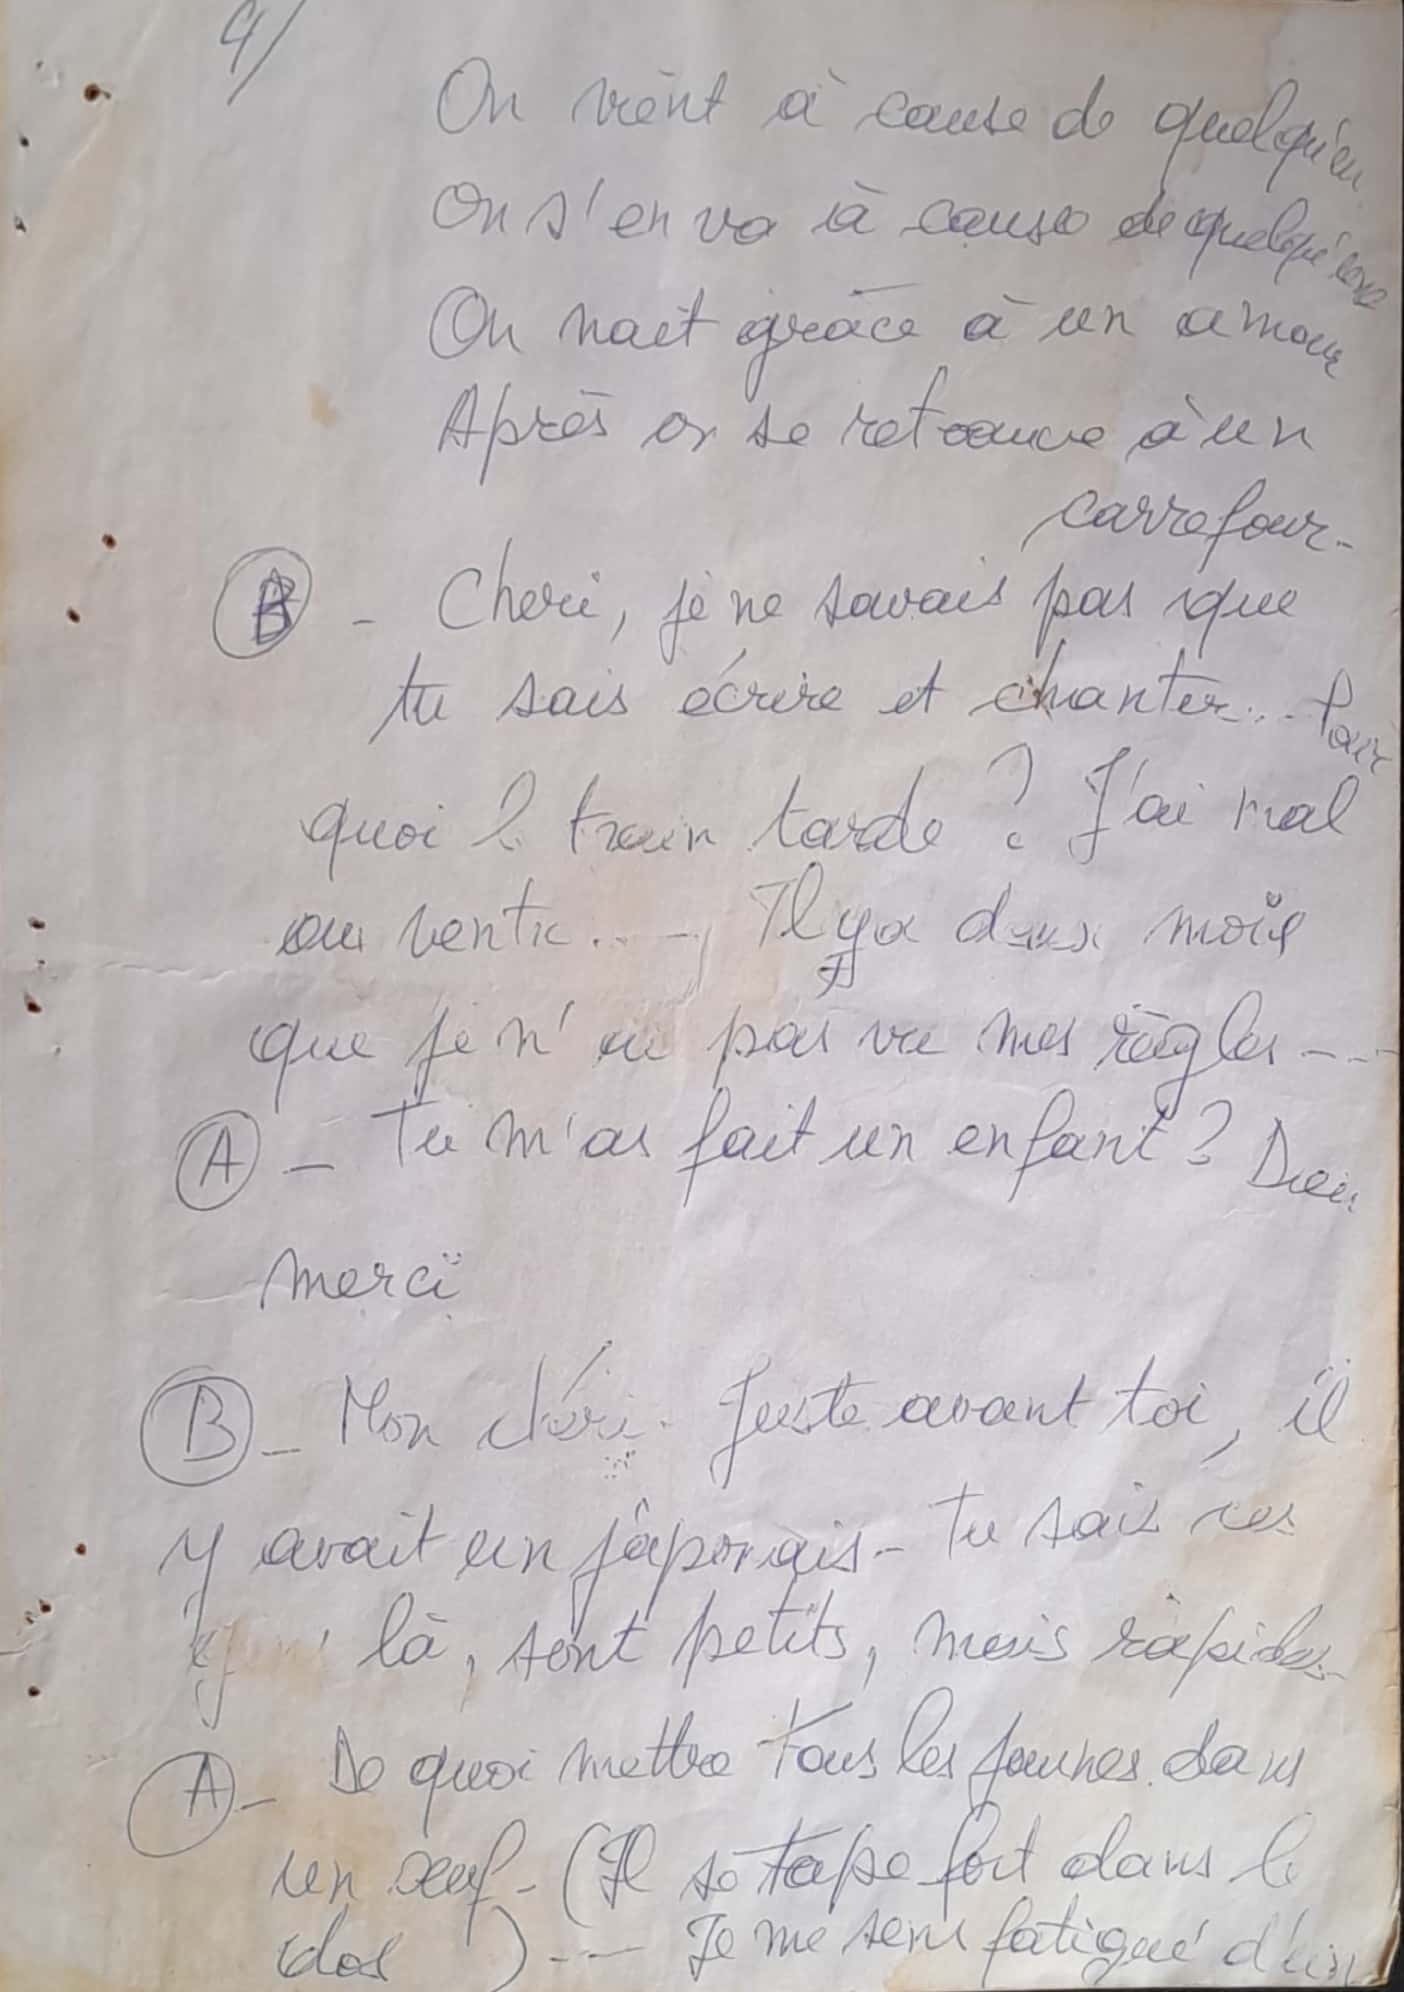 9/
On vient à cause de quelqu'un
On s'en va à cause de quelqu'un
On nait grâce à un amour
Après on se retrouve à un
carrefour-
B - Cheri, je ne savais pas que
tu sais écrire et chanter... Pour
quoi le train tarde ? J'ai mal
au ventre..... Il y a deux mois
que je n'ai pas vu mes règles ---
A - Tu m'as fait un enfant ? Dieu
merci
B - Mon chéri. Juste avant toi, il
y avait un japonais - Tu sais ces
là, sont petits, mais rapides-
A - De quoi mettre tous les jaunes dans
un œuf - (Il se tape fort dans le
dos ) --- Je me sens fatigué d'un